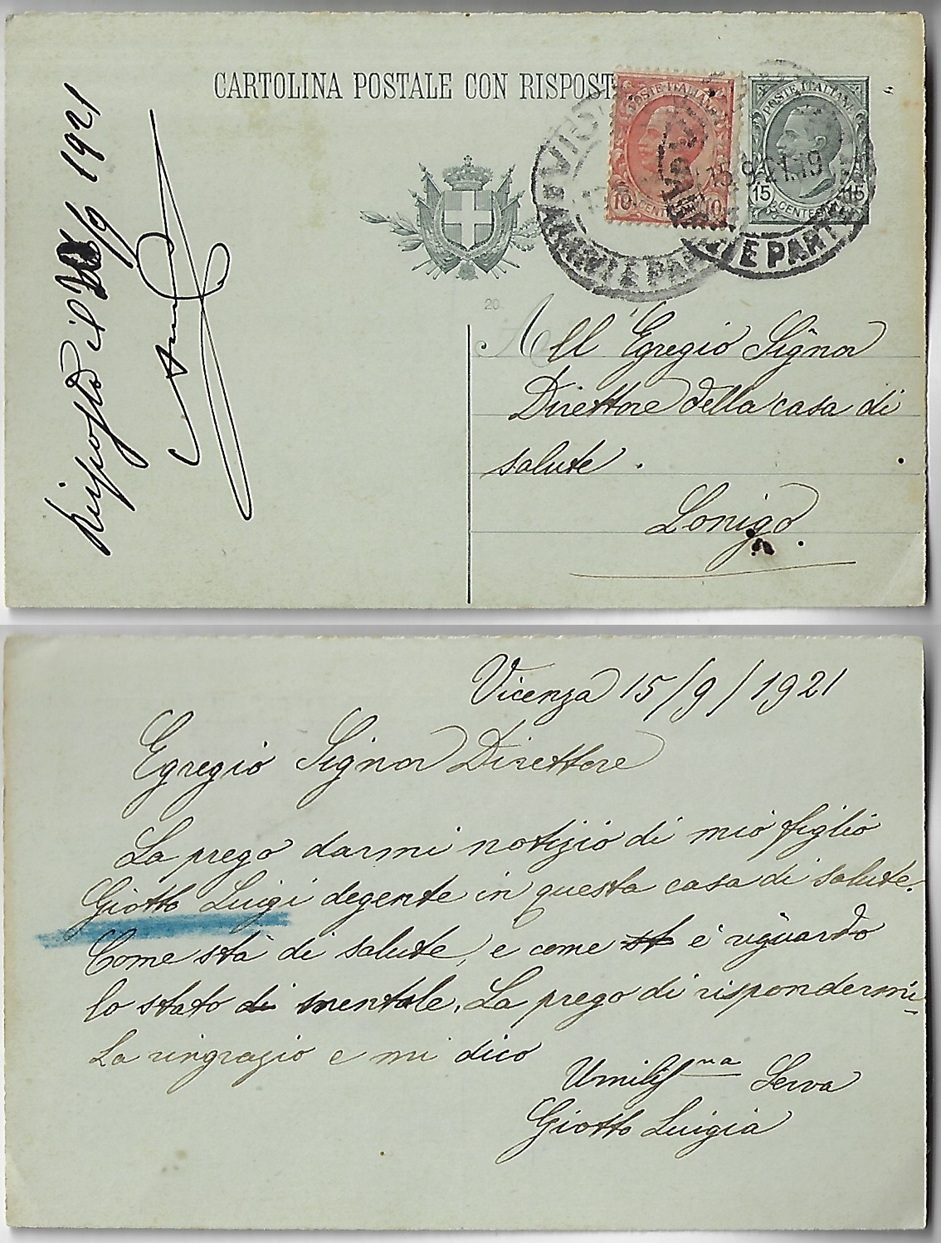 CARTOLINA POSTALE CON RISPOST
POSTE ITALIANE
10 CENT 10
POSTE ITALIANE
15 CENTESIMI 15
15.9.21.19
ARRIVI E PAR
E PART
20
All' Egregio Signor
Direttore della casa di
salute.
Lonigo.
Risposto il 16/9 1921
Vicenza 15/9/1921
Egregio Signor Direttore
La prego darmi notizio di mio figlio
Giotto Luigi degente in questa casa di salute.
Come stà di salute, e come st è riguardo
lo stato di mentale. La prego di rispondermi
La ringrazio e mi dico
Umiliss.ma Serva
Giotto Luigia